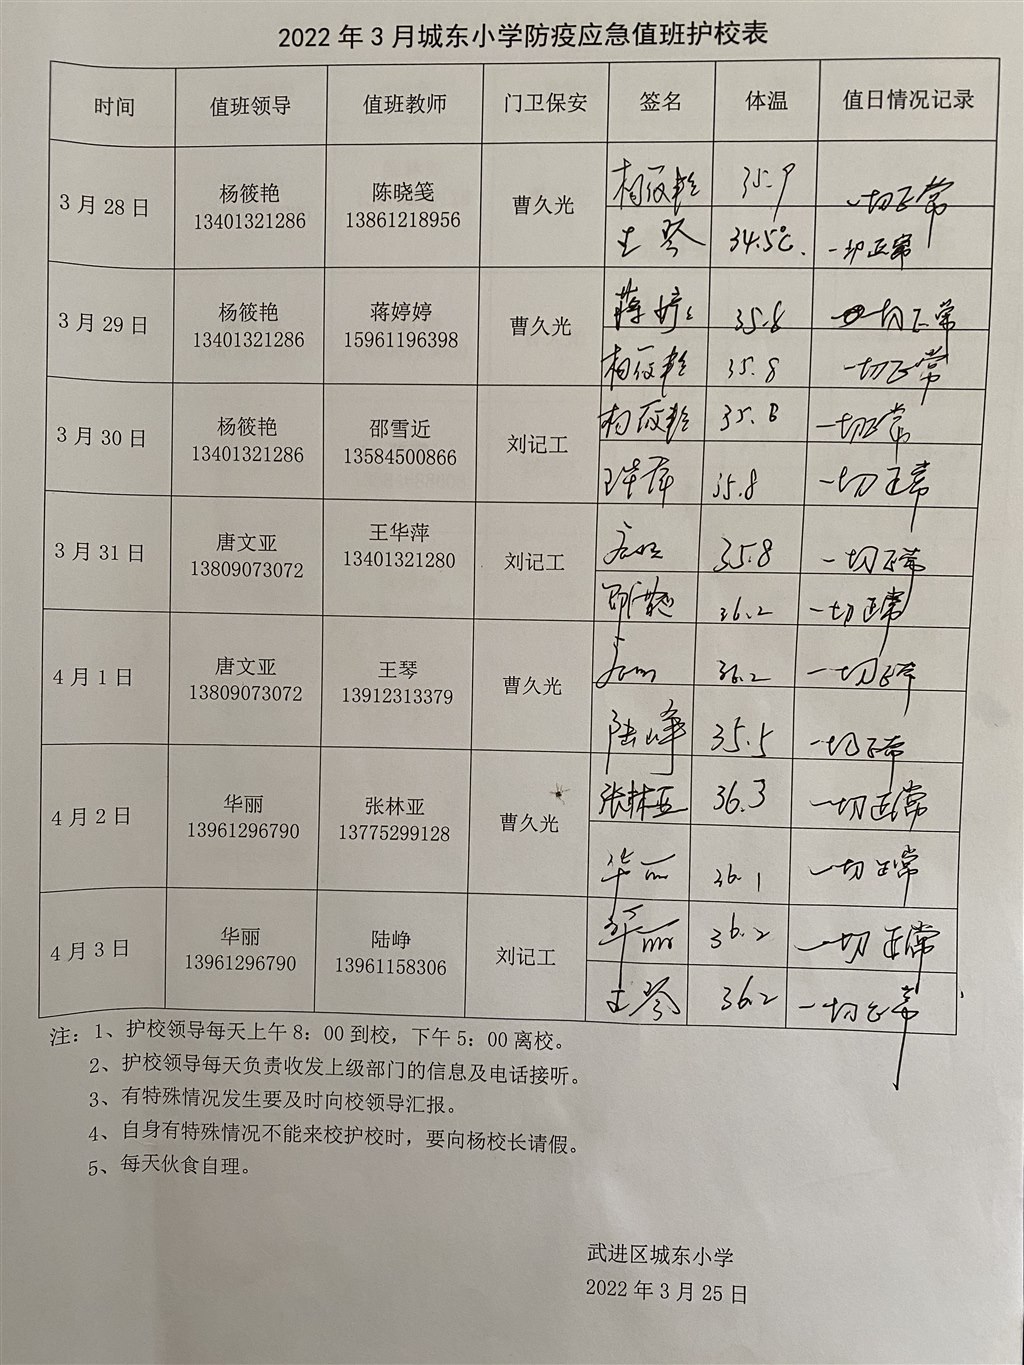 2022 年 3 月城东小学防疫应急值班护校表
时间 值班领导 值班教师 门卫保安 签名 体温 值日情况记录
3 月 28 日 杨筱艳 13401321286 陈晓笺 13861218956 曹久光 杨筱艳 35.9 一切正常
王琴 34.5℃. 一切正常
3 月 29 日 杨筱艳 13401321286 蒋婷婷 15961196398 曹久光 蒋婷婷 35.8 一切正常
杨筱艳 35.8 一切正常
3 月 30 日 杨筱艳 13401321286 邵雪近 13584500866 刘记工 杨筱艳 35.8 一切正常
王华萍 35.8 一切正常
3 月 31 日 唐文亚 13809073072 王华萍 13401321280 刘记工 35.8 一切正常
36.2 一切正常
4 月 1 日 唐文亚 13809073072 王琴 13912313379 曹久光 36.2 一切正常
陆峥 35.5 一切正常
4 月 2 日 华丽 13961296790 张林亚 13775299128 曹久光 张林亚 36.3 一切正常
华丽 36.1 一切正常
4 月 3 日 华丽 13961296790 陆峥 13961158306 刘记工 华丽 36.2 一切正常
王琴 36.2 一切正常
注：1、护校领导每天上午 8：00 到校，下午 5：00 离校。
2、护校领导每天负责收发上级部门的信息及电话接听。
3、有特殊情况发生要及时向校领导汇报。
4、自身有特殊情况不能来校护校时，要向杨校长请假。
5、每天伙食自理。
武进区城东小学
2022 年 3 月 25 日